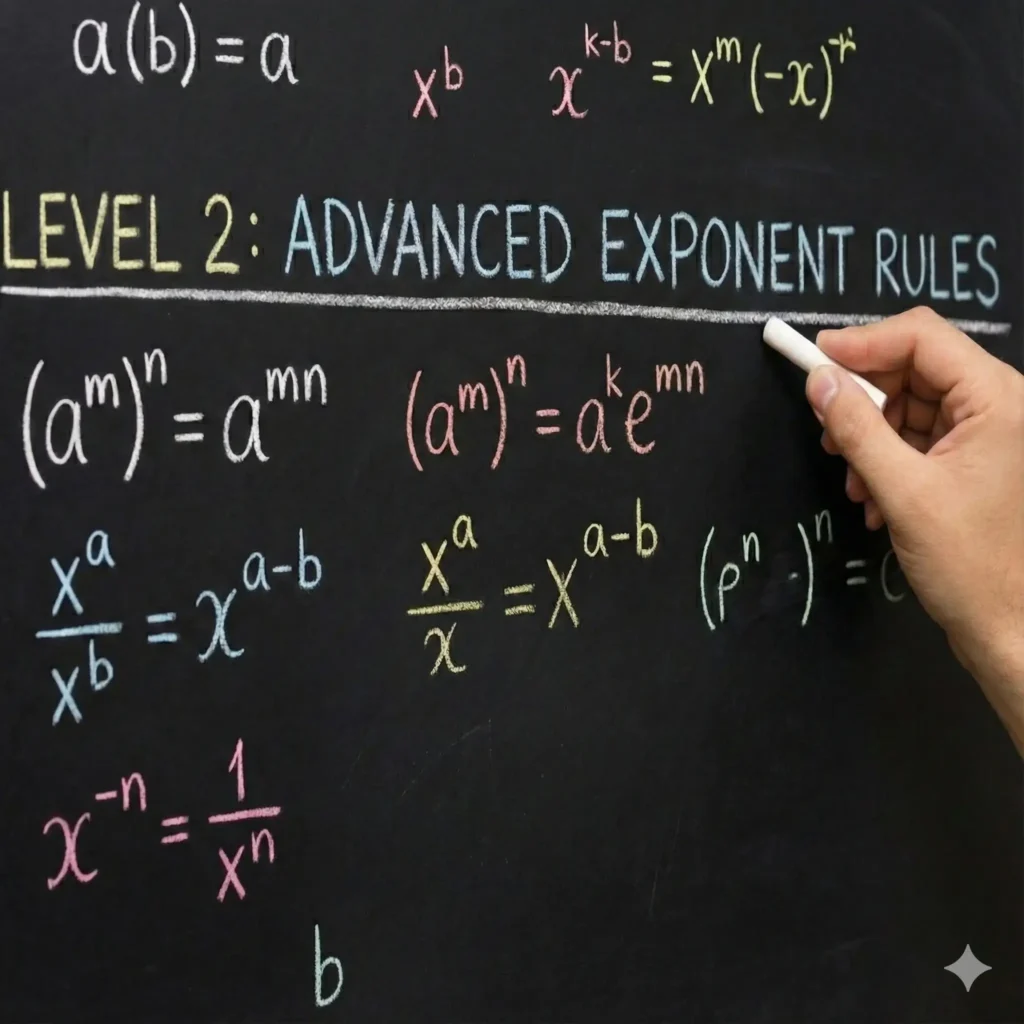 a(b) = a
x^b x^{k-b} = x^m(-x)
LEVEL 2: ADVANCED EXPONENT RULES
(a^m)^n = a^{mn} (a^m)^n = a^k e^{mn}
x^a/x^b = x^{a-b} x^a/x = x^{a-b} (p^n -)^n =
x^{-n} = 1/x^n
b